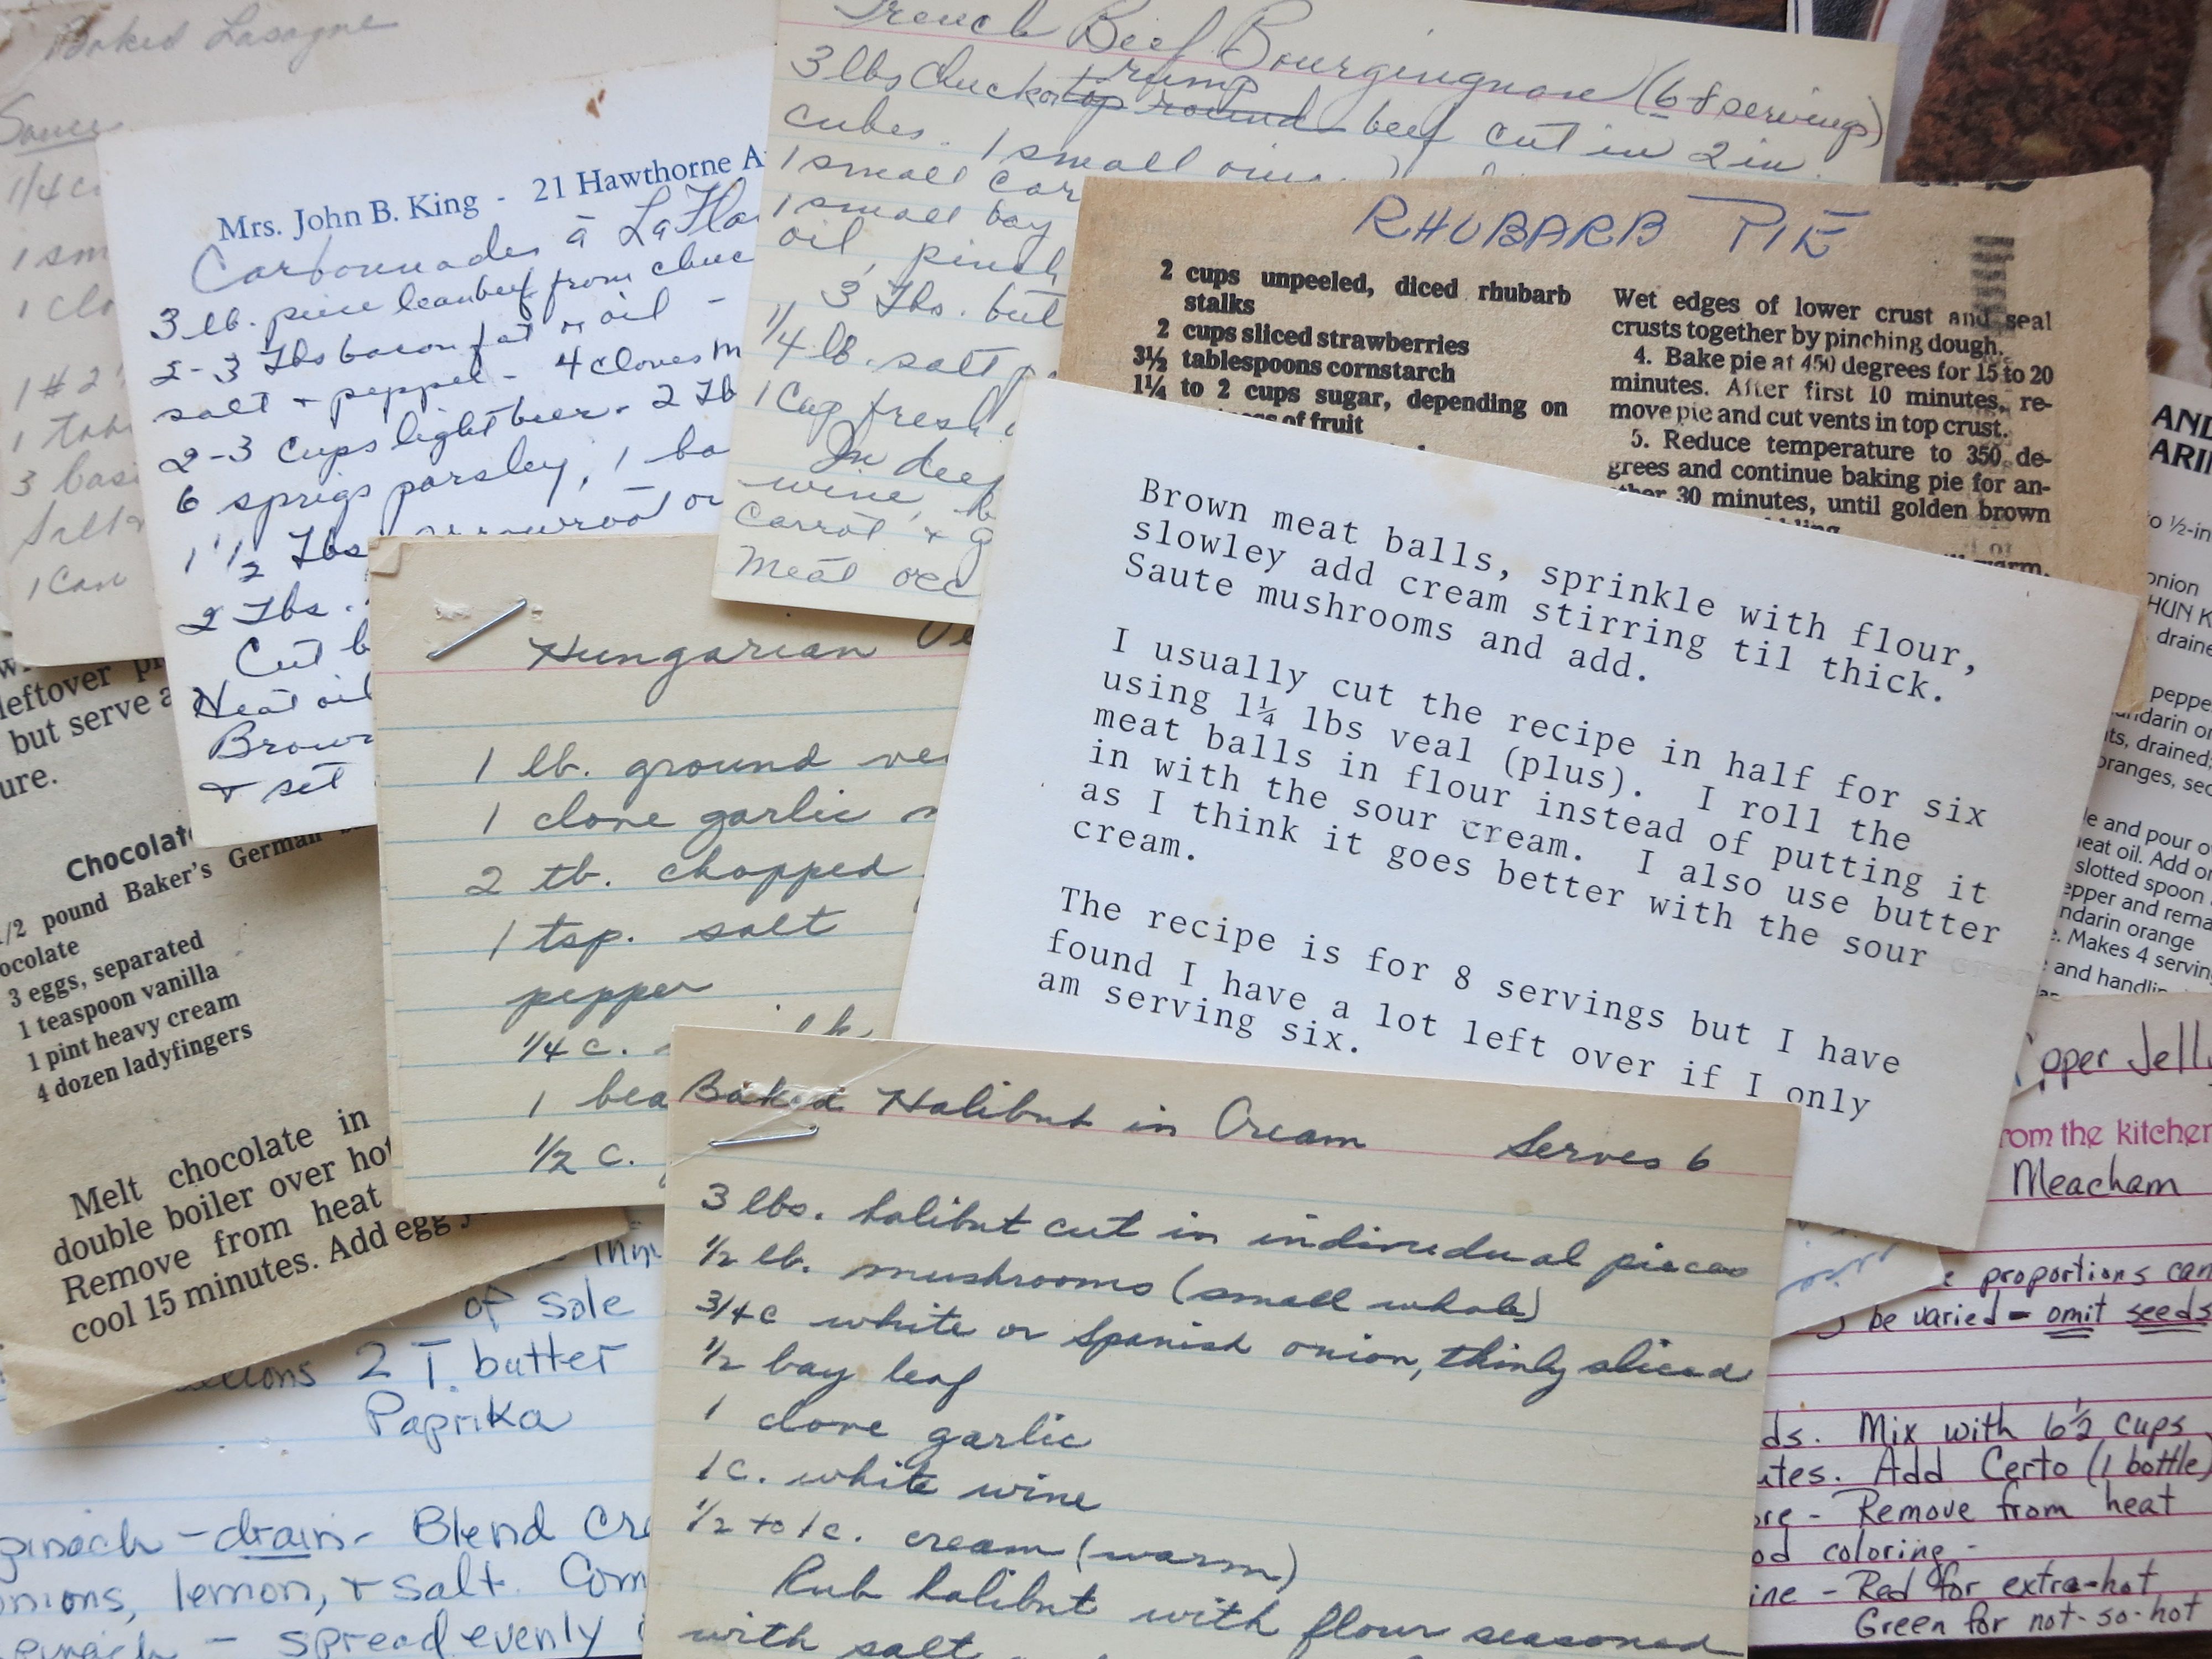 Baked Lasagne
Sauce
1/4 c
1 sm
1 clo
1 # 2
1 tab
3 bas
Salt
1 can
Mrs. John B. King - 21 Hawthorne A
Carbonnades à La Fla
3 lb. piece lean beef from chuc
2-3 Tbs bacon fat or oil -
salt + pepper - 4 cloves m
2-3 cups light beer - 2 Tb
6 sprigs parsley, 1 ba
1 1/2 Tbs arrowroot or
2 Tbs.
Cut b
Heat oil
Brown
+ set
French Beef Bourgingnone (6-8 servings)
rump
3 lbs Chuck or top round beef cut in 2 in
cubes. 1 small onion
1 small car
1 small bay
oil, pinch
3 Tbs. but
1/4 lb. salt p
1 Cup fresh
In deep
wine, b
carrot + g
Meat occ
RHUBARB PIE
2 cups unpeeled, diced rhubarb
stalks
2 cups sliced strawberries
3½ tablespoons cornstarch
1¼ to 2 cups sugar, depending on
of fruit
Wet edges of lower crust and seal
crusts together by pinching dough.
4. Bake pie at 450 degrees for 15 to 20
minutes. After first 10 minutes, re-
move pie and cut vents in top crust.
5. Reduce temperature to 350 de-
grees and continue baking pie for an-
other 30 minutes, until golden brown
Brown meat balls, sprinkle with flour,
slowley add cream stirring til thick.
Saute mushrooms and add.
I usually cut the recipe in half for six
using 1¼ lbs veal (plus). I roll the
meat balls in flour instead of putting it
in with the sour cream. I also use butter
as I think it goes better with the sour
cream.
The recipe is for 8 servings but I have
found I have a lot left over if I only
am serving six.
Hungarian Ve
1 lb. ground ve
1 clove garlic m
2 tb. chopped
1 tsp. salt
pepper
1/4 c.
1 bea
1/2 c.
Baked Halibut in Cream Serves 6
3 lbs. halibut cut in individual pieces
1/2 lb. mushrooms (small whole)
3/4 c white or Spanish onion, thinly sliced
1/2 bay leaf
1 clove garlic
1 c. white wine
1/2 to 1 c. cream (warm)
Rub halibut with flour seasoned
with salt
leftover pr
but serve a
ure.
Chocolat
1/2 pound Baker's German
ocolate
3 eggs, separated
1 teaspoon vanilla
1 pint heavy cream
4 dozen ladyfingers
Melt chocolate in
double boiler over hot
Remove from heat
cool 15 minutes. Add egg y
of sole
2 T. butter
Paprika
pinach - drain - Blend Cre
onions, lemon, + salt. Com
pinach - spread evenly i
AND
ARI
o ½-in
onion
HUN K
draine
peppe
ndarin or
ts, drained;
oranges, sec
le and pour o
heat oil. Add or
slotted spoon
epper and rema
ndarin orange
e. Makes 4 servin
and handlin
pper Jelly
rom the kitchen
Meacham
e proportions can
be varied - omit seeds
ds. Mix with 6½ cups
utes. Add Certo (1 bottle)
ore - Remove from heat
od coloring -
ine - Red for extra-hot
Green for not-so-hot